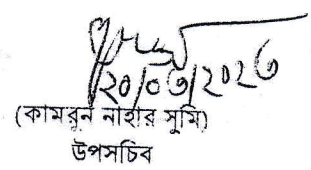 ২০/০৩/২০২৩
(কামরুন নাহার সুমি)
উপসচিব